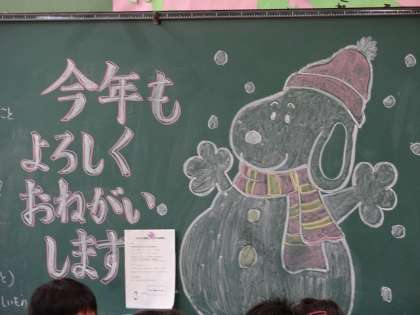 今年も
よろしく
おねがい
します